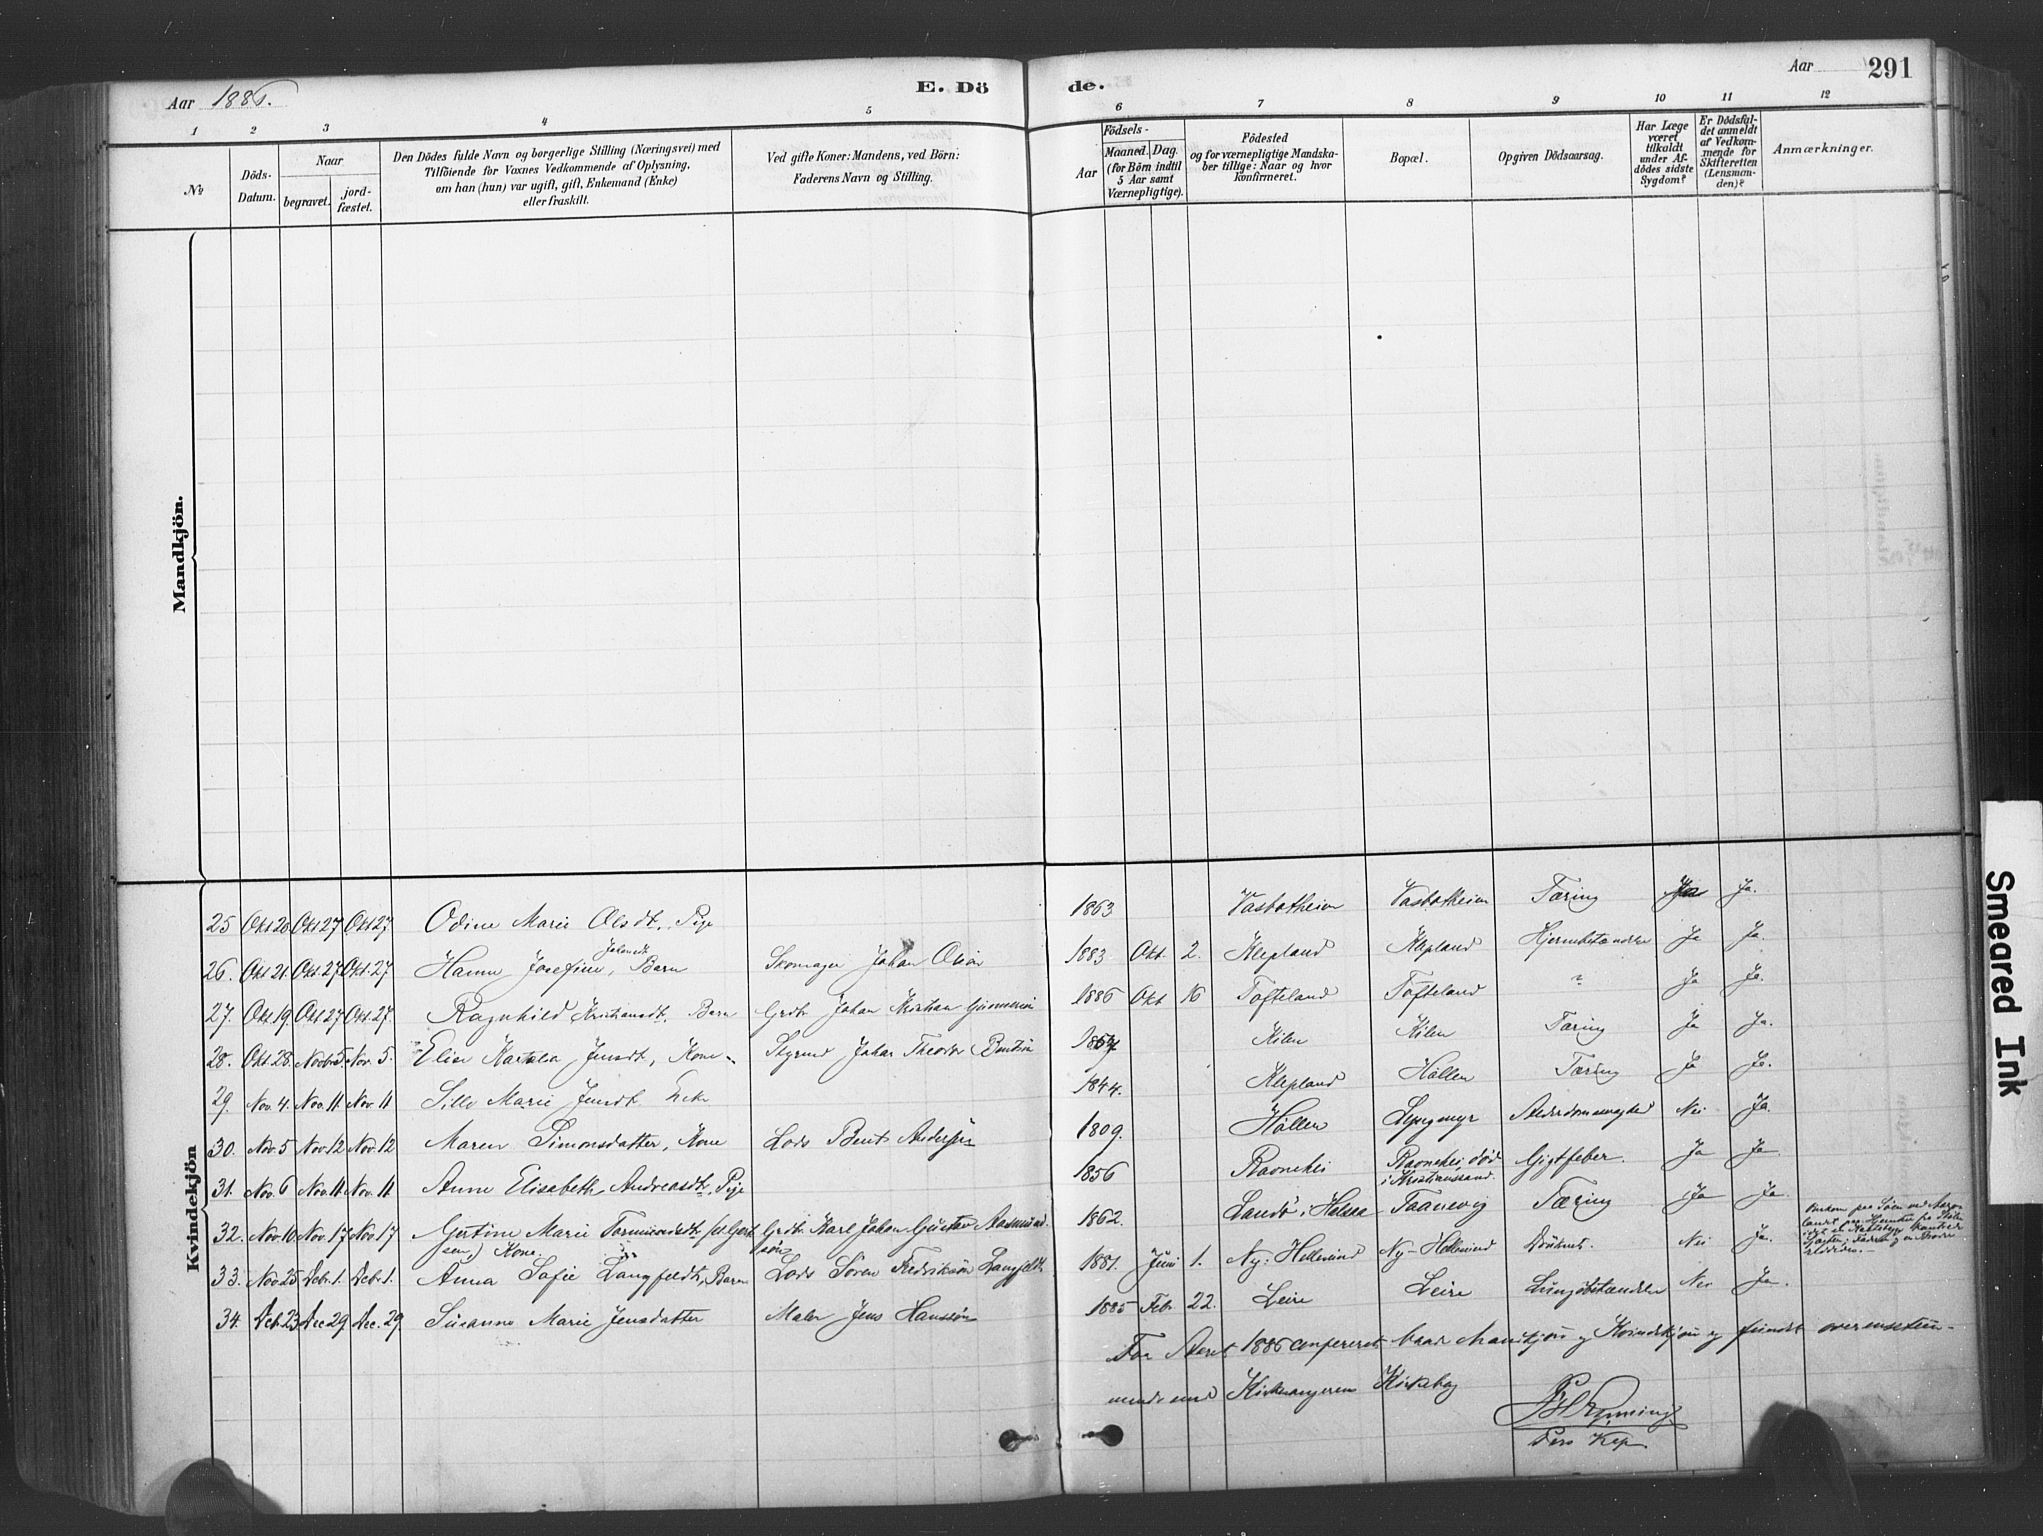 Aar 1886.
E. Dö
de.
Aar
291
1 2 3 4 5 6 7 8 9 10 11 12
No
Döds-
Datum.
Naar
begravet.
jord-
fæstet.
Den Dödes fulde Navn og borgerlige Stilling (Næringsvei) med
Tilföiende for Voxnes Vedkommende af Oplysning,
om han (hun) var ugift, gift, Enkemand (Enke)
eller fraskilt.
Ved gifte Koner: Mandens, ved Börn:
Faderens Navn og Stilling.
Födsels-
Aar
Maaned. Dag
(for Börn indtil
5 Aar samt
Værnepligtige).
Födested
og for værnepligtige Mandska-
ber tillige: Naar og hvor
konfirmeret.
Bopæl.
Opgiven Dödsaarsag.
Har Læge
været
tilkaldt
under Af-
dödes sidste
Sygdom?
Er Dödsfal-
det anmeldt
af Vedkom-
mende for
Skifteretten
(Lensman-
den)?
Anmærkninger.
Mandkjön.
Kvindekjön
25 Okt 20 Okt 27 Okt 27 Odine Marie Olsdt., Pige 1863 Tæring Ja Ja.
26. Okt 21. Okt. 27 Okt. 27 Hanne Josefine Johansdt, Barn Skomager Johan Olsön 1883 Okt. 2. Klepland Klepland Hjernebetændelse Ja Ja.
27. Okt. 19. Okt 27 Okt. 27. Ragnhild Kristiansdt. Barn Grdr. Johan Kristian 1886 Okt 16 Tofteland Tofteland ? Ja Ja.
28. Okt. 28. Novbr 5 Nov. 5. Elise Jensdt, Kone Johan Theodor Kilen Kilen Tæring Ja Ja.
29. Nov. 4. Nov. 11. Nov. 11 Marie Jensdt. Enke 1844. Klepland Höllen Tæring Ja Ja.
30. Nov. 5 Nov. 12 Nov. 12 Maren Simonsdatter, Kone Lods Bent Andersön 1809. Höllen Nei Ja.
31. Nov. 6 Nov. 11 Nov. 11 Anne Elisabeth Andreasdtr, Pige 1856 Ravnehei Ravnehei, död
i Kristianssand. Gigtfeber. Ja Ja
32. Nov. 10 Nov. 17 Nov. 17 Gertine Marie
sen) Kone. Grdr. Karl Johan Gustav Aasmund-
sön 1862. Landö i Halsaa Taanevig Tæring Ja Ja
33. Nov 25 Debr. 1. Debr. 1. Anna Sofie Langfeldt, Barn Lods Sören Fredriksön Langfeldt 1881. Juni 1. Ny-Hellesund Ny-Hellesund Druknet. Nei Ja.
34. Deb. 23 Dec 29 Dec. 29. Susanne Marie Jensdatter Maler Jens Hansön 1885 Feb. 22. Leire Leire Lungebetændelse Nei Ja.
For Aaret 1886 confereret baade Mandkjön og Kvindekjön og fundet overensstem-
mende med Kirkesangerens Kirkebog
Smeared Ink